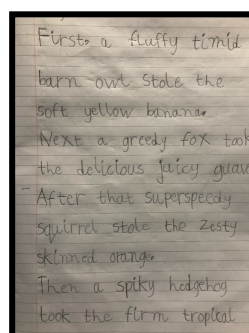 First, a fluffy timid
barn owl stole the
soft yellow banana.
Next a greedy fox took
the delicious juicy guava
After that superspeedy
squirrel stole the zesty
skinned orange.
Then a spiky hedgehog
took the firm tropical